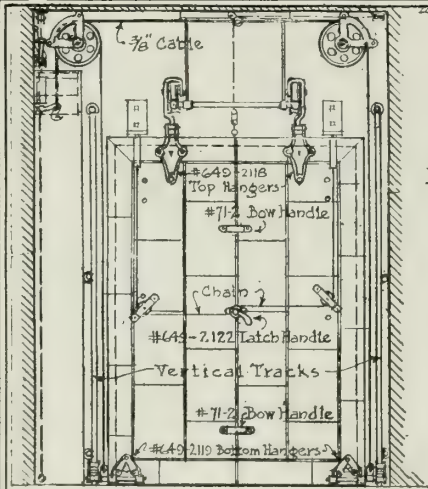 3/8" Cable
#649-2118
Top Hangers
#71-2 Bow Handle
Chain
#649-2122 Latch Handle
Vertical Tracks
#71-2 Bow Handle
#649-2119 Bottom Hangers